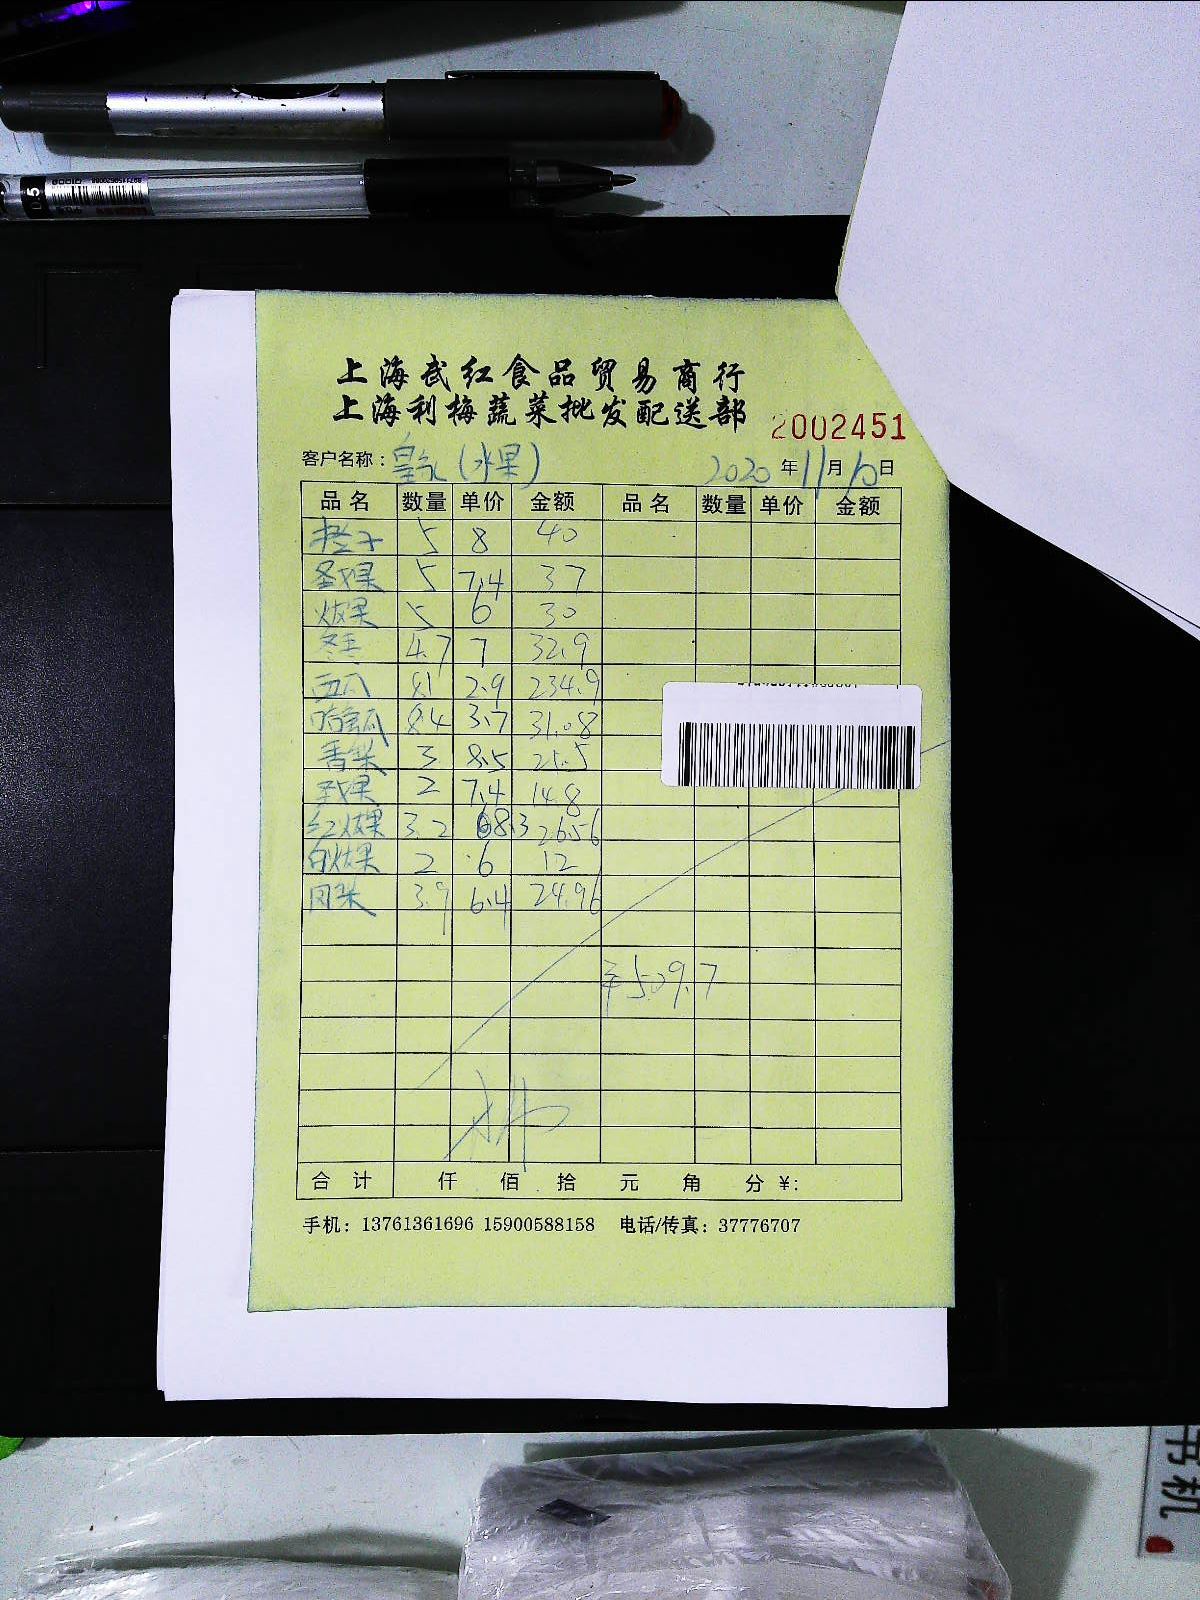 0.5
上海武红食品贸易商行
上海利梅蔬菜批发配送部
2002451
客户名称: (水果) 2020年11月10日
品名 数量 单价 金额 品名 数量 单价 金额
橙子 5 8 40
圣女果 5 7.4 37
火龙果 5 6 30
冬枣 4.7 7 32.9
西瓜 81 2.9 234.9
哈密瓜 8.4 3.7 31.08
香梨 3 8.5 25.5
2 7.4 14.8
红火龙果 3.2 8.3 26.56
白火龙果 2 6 12
3.9 6.4 24.96
¥509.7
合计 仟 佰 拾 元 角 分 ¥:
手机: 13761361696 15900588158 电话/传真: 37776707
书机